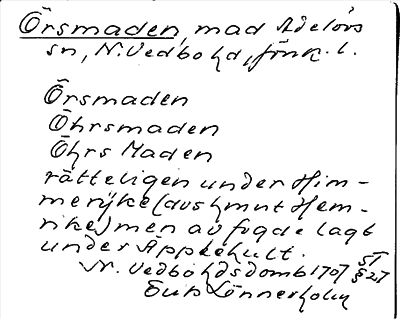 Örsmaden, mad Adelövs
sn, N. Vedbo hd, Jönk. l.
Örsmaden
Öhrsmaden
Öhrs Maden
rätteligen under Him-
merijke (avs hmnt Hem-
rike) men av fogde lagt
under Äpplehult.
N. Vedbo hds domb 1707 ST
§ 27
Lönnerholm